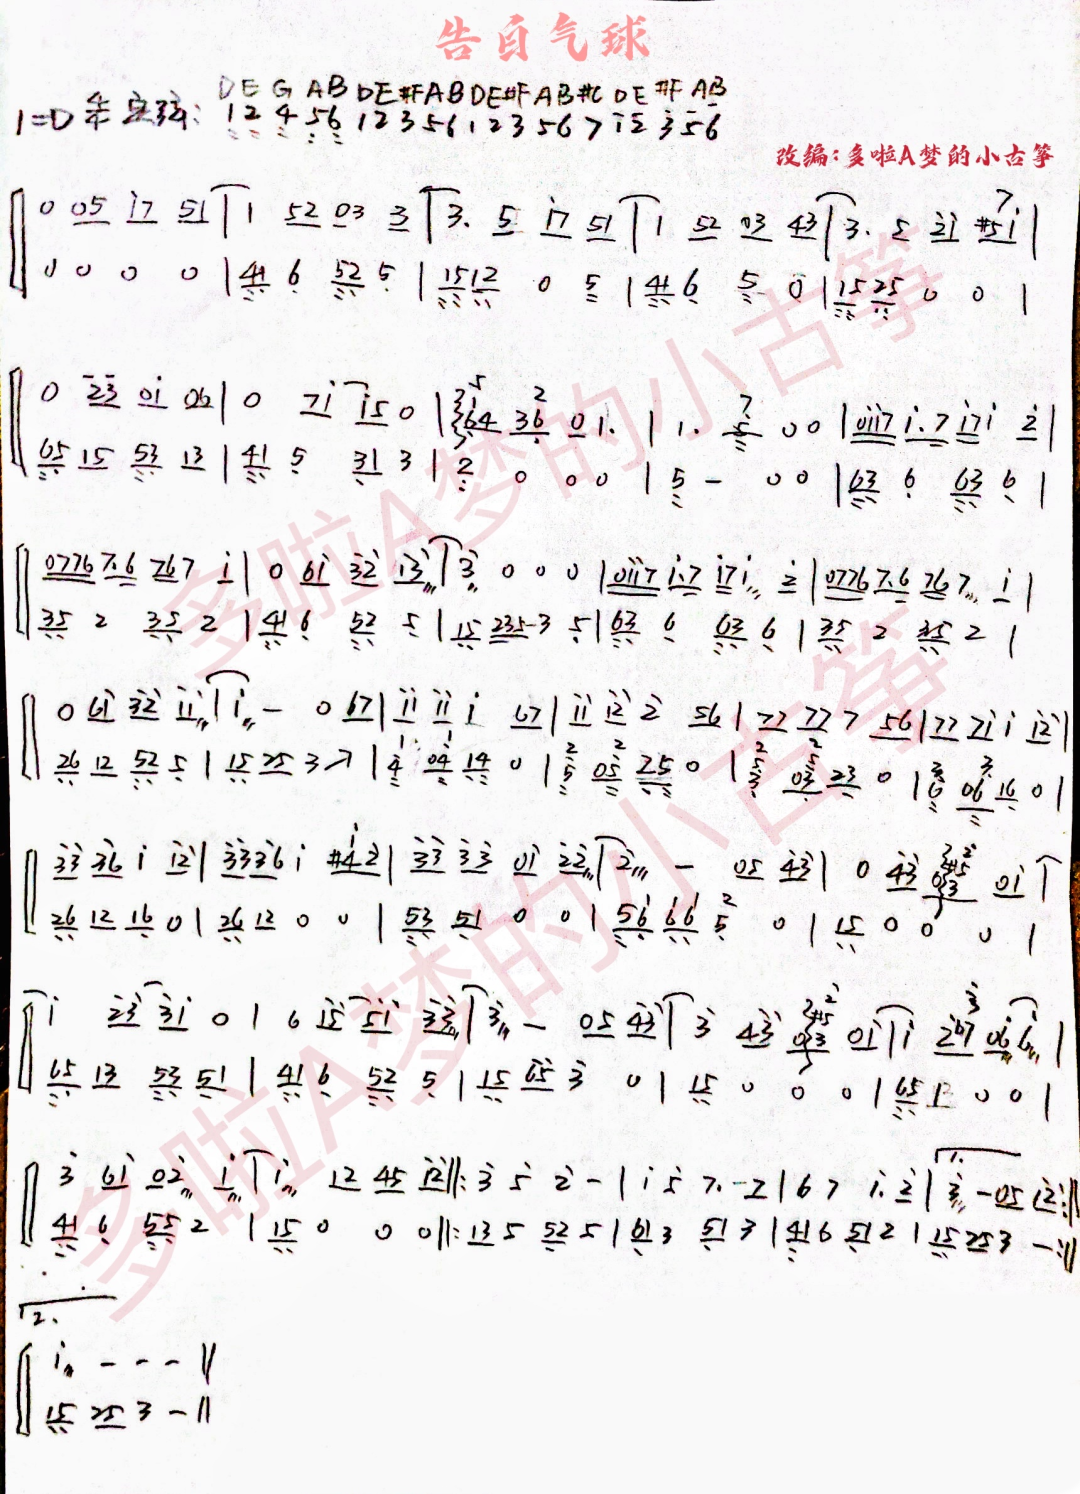 告白气球
DE G AB DE#FAB DE#F AB#C DE #F AB
1=D 定弦: 12 4 56 12356 123 567 12 3 56
改编:多啦A梦的小古筝
0 05 i7 51 | 1 52 03 3 | 3. 5 i7 51 | 1 52 03 43 | 3. 5 2i #5i |
0 0 0 0 | 41 6 52 5 | 1512 0 5 | 41 6 5 0 | 1525 0 0 |
0 23 0i 06 | 0 7i i5 0 | 64 36 01. | 1. 5 0 0 | 0ii7 i.7 i7i 2 |
65 15 53 13 | 41 5 31 3 | 2 0 0 0 | 5 - 0 0 | 63 6 63 6 |
0776 7.6 767 i | 0 6i 32 i3 | 3 0 0 0 | 0ii7 i.7 i7i 2 | 0776 7.6 767 i |
35 2 35 2 | 41 6 52 5 | 15 235-3 5 | 63 6 63 6 | 35 2 35 2 |
0 6i 32 ii | i - 0 67 | ii ii i 67 | ii i2 2 56 | 77 77 7 56 | 77 7i i i2 |
26 12 52 5 | 15 25 3 7 | 4 04 14 0 | 5 05 25 0 | 3 03 23 0 | 6 06 16 0 |
33 36 i i2 | 3336 i #42 | 33 33 0i 22 | 2 - 05 43 | 0 43 03 0i
26 12 16 0 | 26 12 0 0 | 53 51 0 0 | 56 66 5 0 | 15 0 0 0 |
i 23 3i 0 | 6 i5 5i 33 | 3 - 05 43 | 3 43 03 0i | i 27 06 6 |
65 13 53 51 | 41 6 52 5 | 15 65 3 0 | 15 0 0 0 | 65 1 0 0 |
3 6i 02 i | i 12 45 i2 ||: 3 5 2 - | i 5 7. 7 | 6 7 i. 2 | 3 - 05 i2 :||
41 6 55 2 | 15 0 0 0 ||: 13 5 52 5 | 61 3 51 3 | 41 6 51 2 | 15 25 3 - :||
2.
i - - - ||
15 25 3 - ||
多啦A梦的小古筝
多啦A梦的小古筝